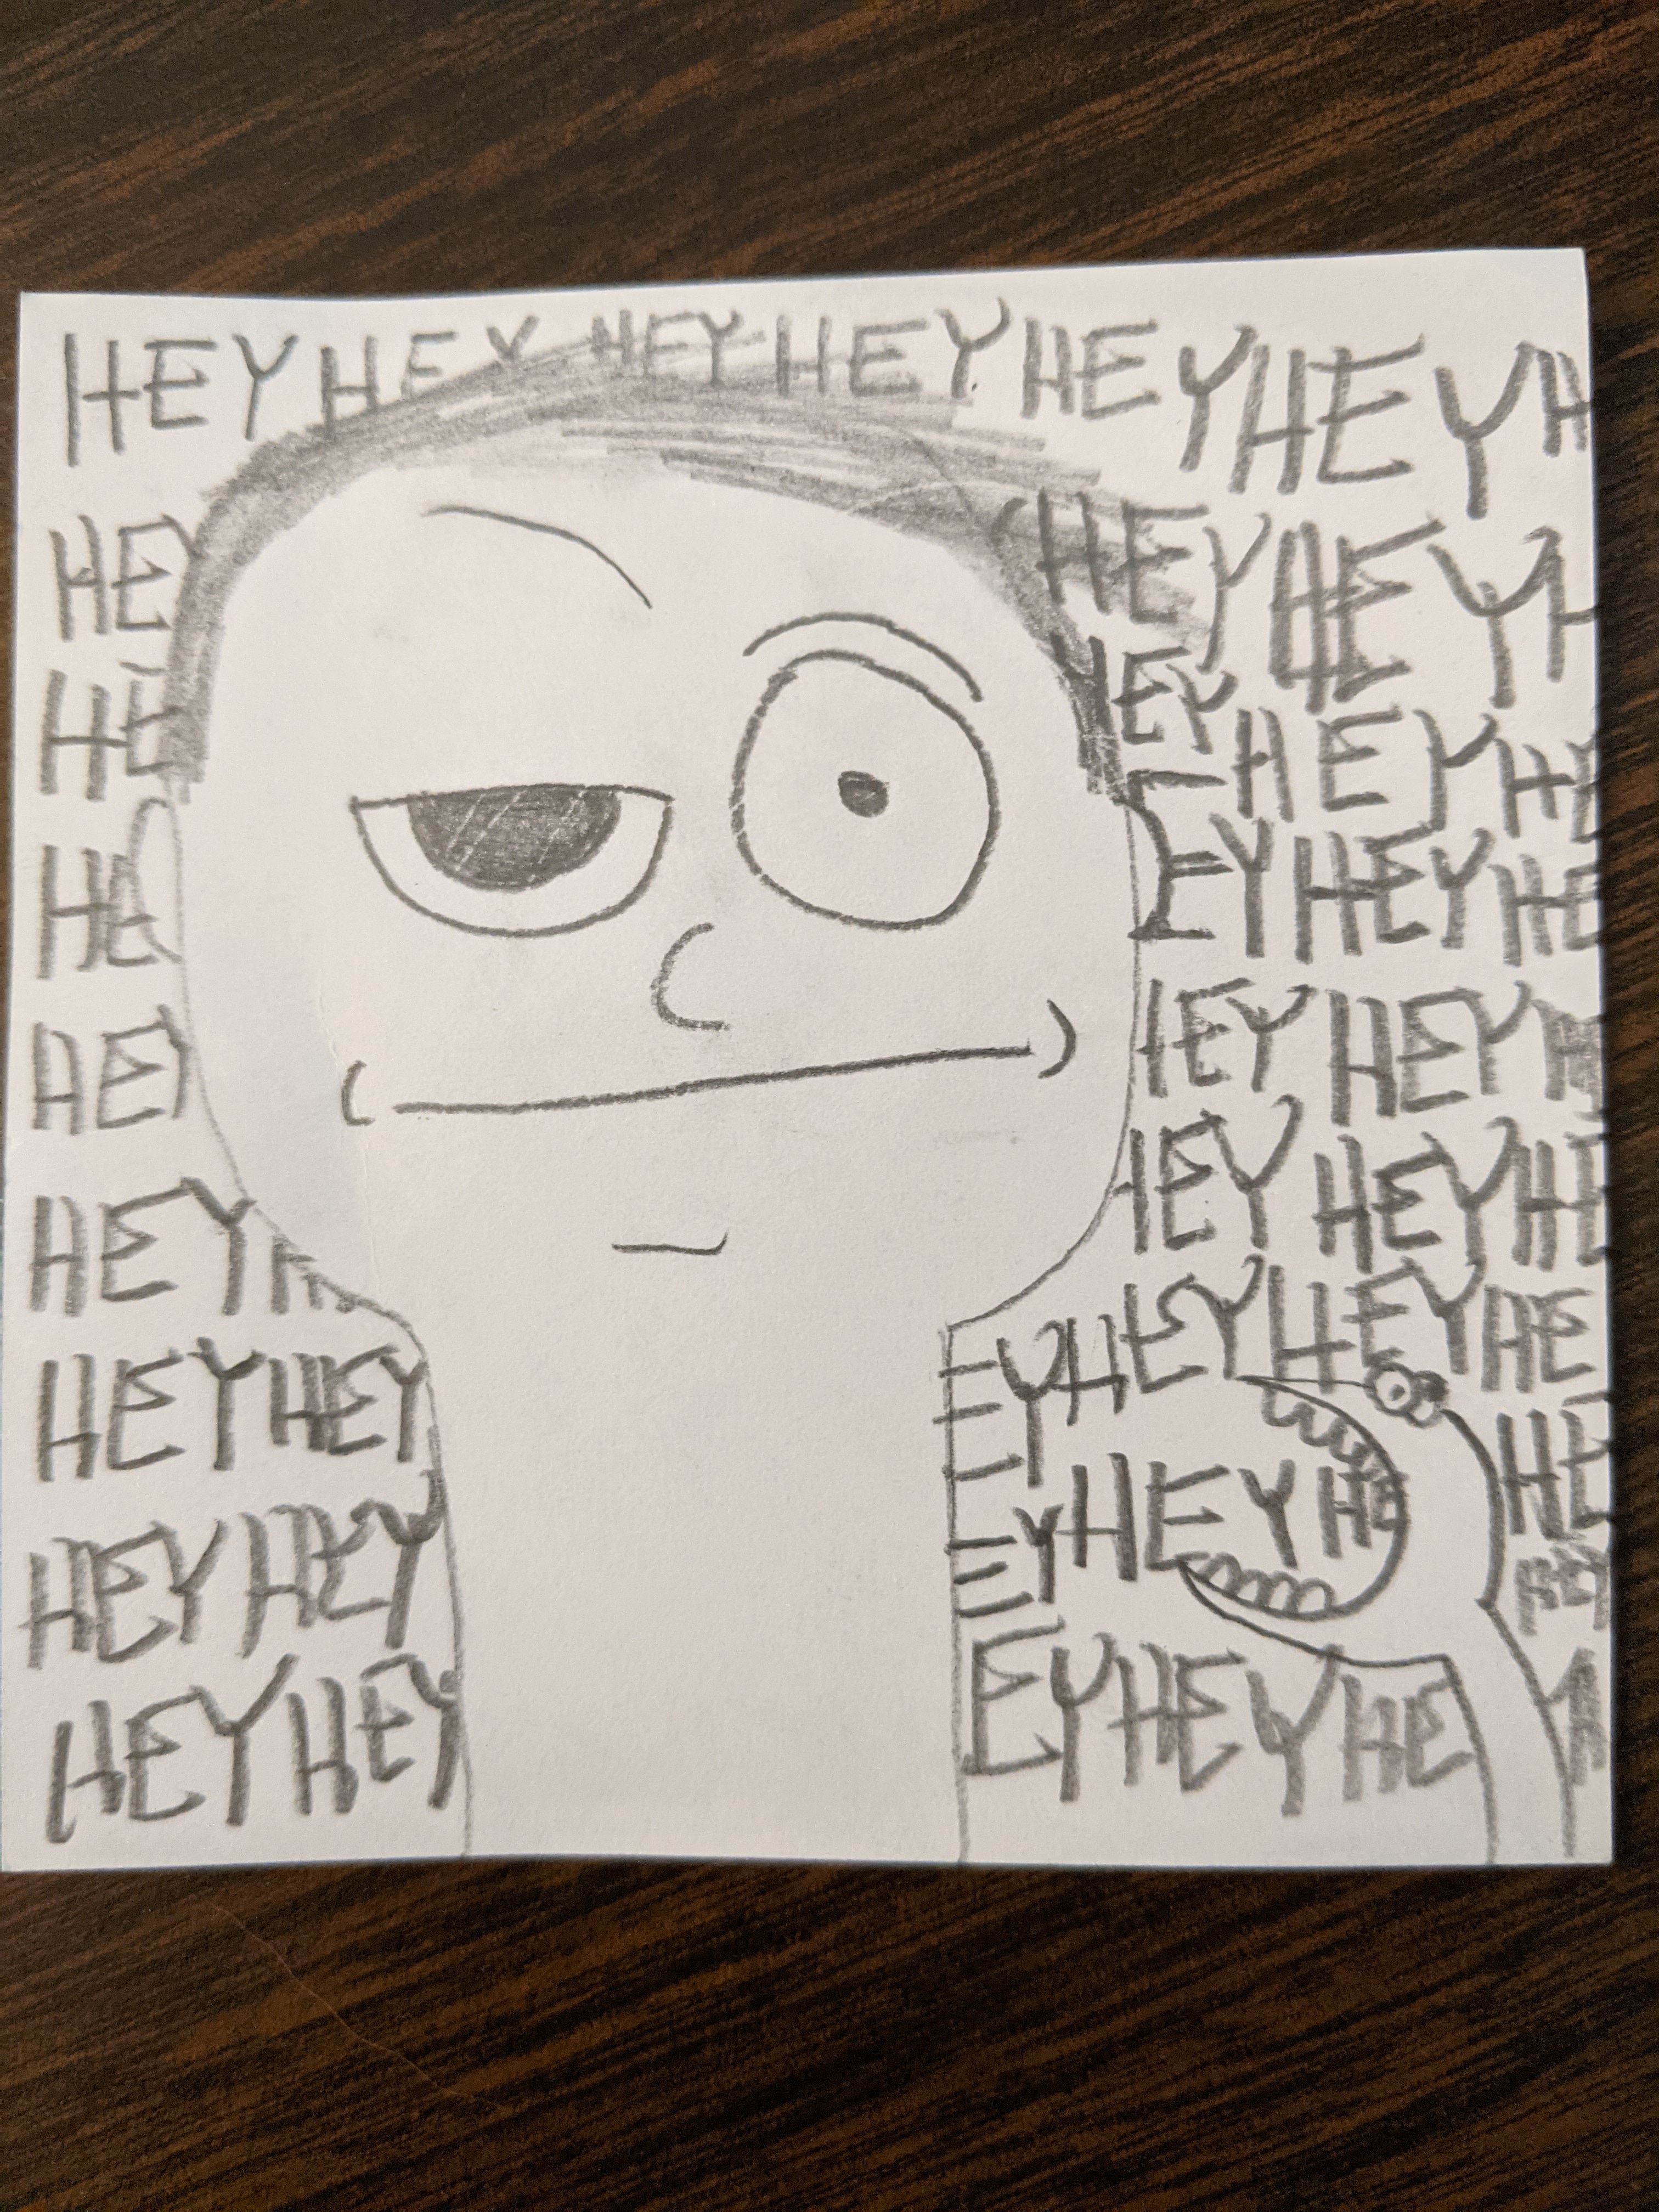 HEY HEY HEY HEY HEY HEY H
HE HEY HEY H
HE HEY HEY HE
HE EY HEY HE
HEY HEY HEY H
HEY H HEY HEY HE
HEY HEY EY HEY HEY HE
EY HE
HEY HEY EY HEY HE HEY
HEY HEY EY HEY HE H